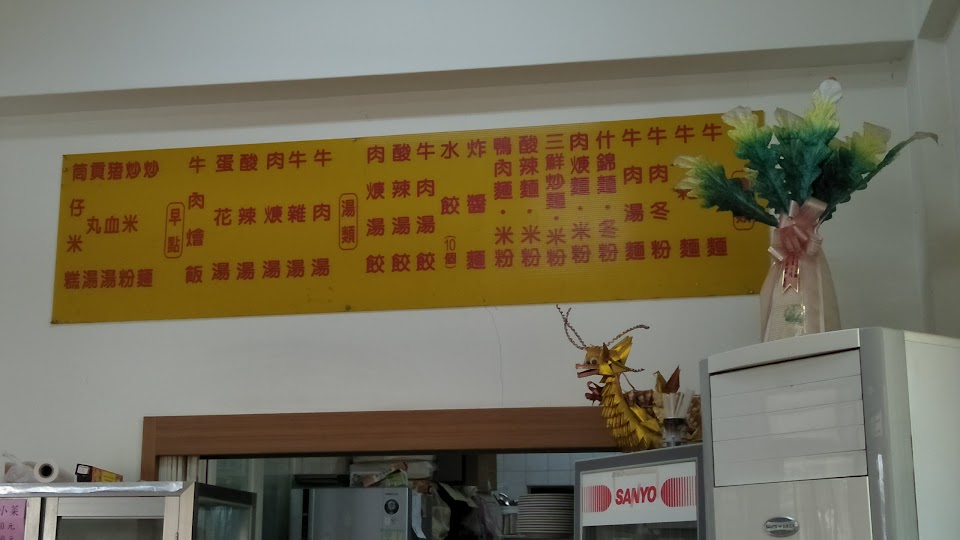 牛麵
牛麵
牛肉冬粉
牛肉湯麵
什錦麵.冬粉
肉焿麵.米粉
三鮮炒麵.米粉
酸辣麵.米粉
鴨肉麵.米粉
炸醬麵
水餃(10個)
牛肉湯餃
酸辣湯餃
肉焿湯餃
湯類
牛肉湯
牛雜湯
肉焿湯
酸辣湯
蛋花湯
牛肉燴飯
早點
炒麵
炒米粉
豬血湯
貢丸湯
筒仔米糕
SANYO
小菜
元